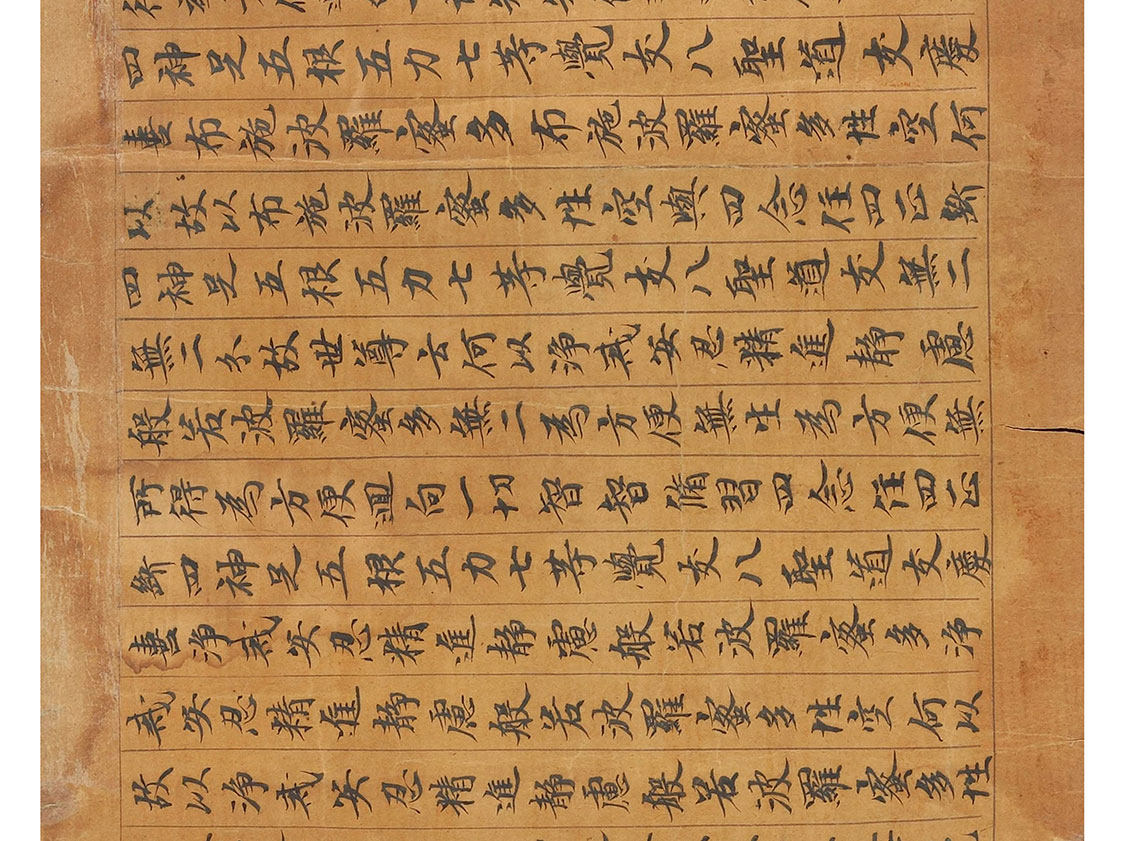 四神足五根五力七等覺支八聖道支慶
喜布施波羅蜜多布施波羅蜜多性空何
以故以布施波羅蜜多性空與四念住四正斷
四神足五根五力七等覺支八聖道支無二
無二分故世尊云何以淨戒安忍精進靜慮
般若波羅蜜多無二為方便無生為方便無
所得為方便迴向一切智智脩習四念住四正
斷四神足五根五力七等覺支八聖道支慶
喜淨戒安忍精進靜慮般若波羅蜜多淨
戒安忍精進靜慮般若波羅蜜多性空何以
故以淨戒安忍精進靜慮般若波羅蜜多性